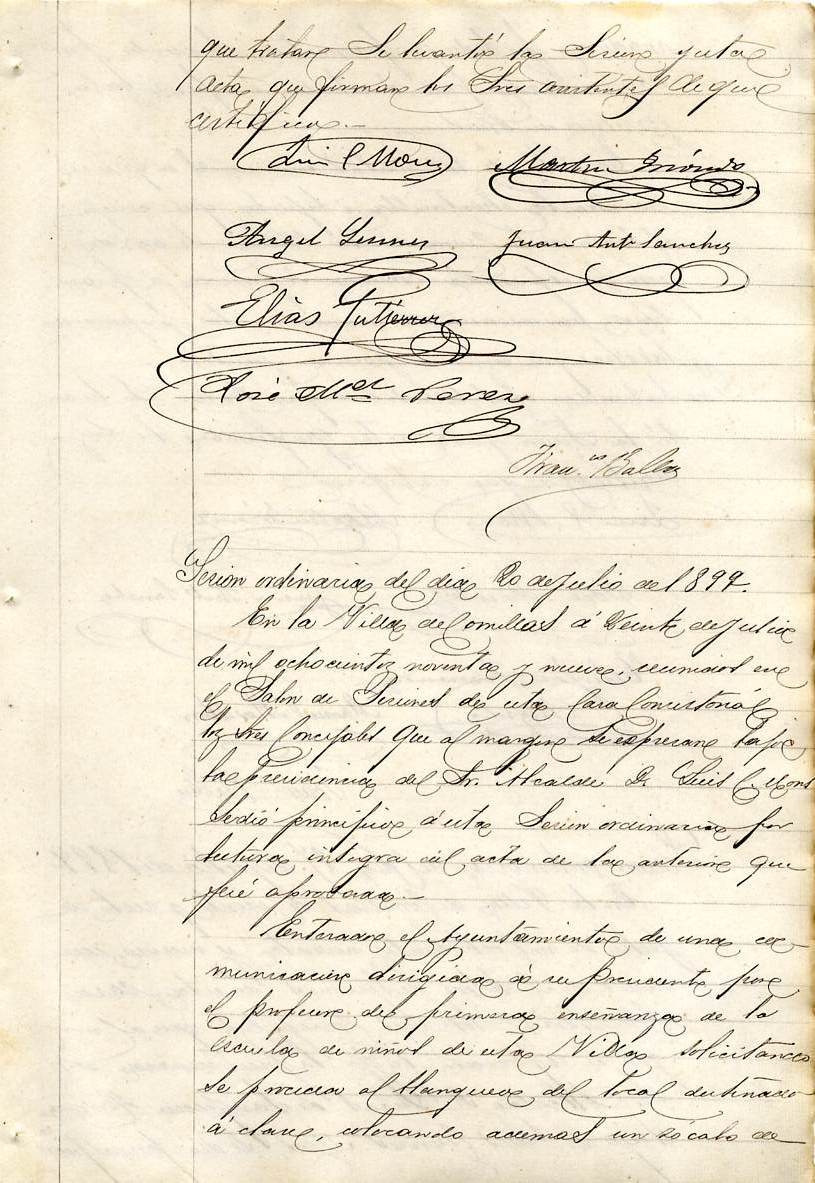 que tratar se levantó la Sesion y esta
acta que firman los Sres asistentes de que
certifico.—
Luis C Mons Martin
Angel Juan Ant Sanchez
Elias Gutierrez
José Mel Perez
Fran.co
Sesion ordinaria del dia 20 de Julio de 1899.
En la Villa de Comillas á Veinte de Julio
de mil ochocientos noventa y nueve, reunidos en
el Salon de Sesiones de esta Casa Consistorial
los Sres Concejales que al margen se espresan bajo
la Presidencia del Sr. Alcalde D. Luis C. Mons
se dió principio á esta Sesion ordinaria por
lectura integra del acta de la anterior que
fué aprobada.—
Enterado el Ayuntamiento de una co-
municacion dirigida á su Presidente por
el profesor de primera enseñanza de la
escuela de niños de esta Villa solicitando
se proceda al blanqueo del local destinado
á clase, colocando ademas un zócalo de